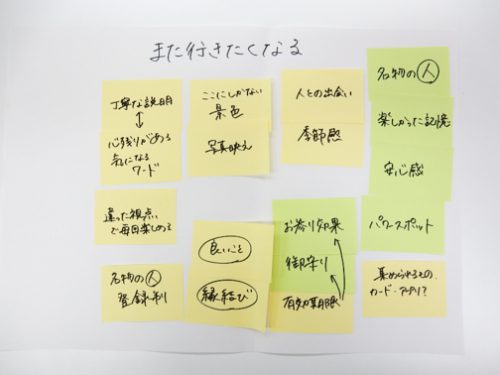 また行きたくなる
丁寧な説明
↕
心残りがある
気になる
ワード
違った視点
で毎回楽しめる
名物の人
登録制
ここにしかない
景色
写真映え
良いこと
縁結び
人との出会い
季節感
お参り効果
御守り
有効期限
名物の人
楽しかった記憶
安心感
パワースポット
集められるもの
カード・アプリ?